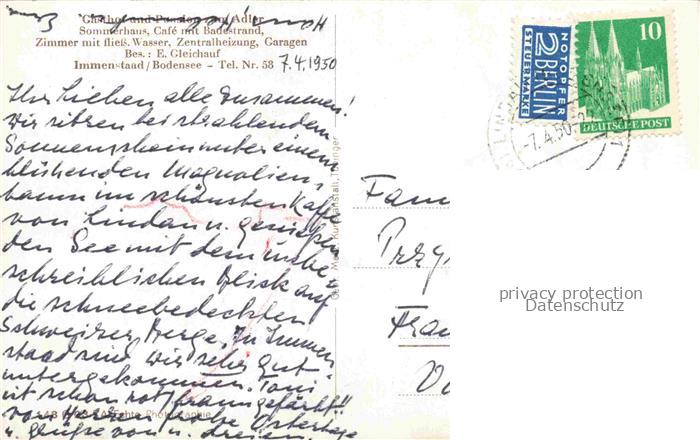 Gasthof und Pension zum Adler
Sommerhaus, Café mit Badestrand,
Zimmer mit fließ. Wasser, Zentralheizung, Garagen
Bes.: E. Gleichauf
Immenstaad/Bodensee – Tel. Nr. 58
7.4.1950
Ihr Lieben alle zusammen!
Wir sitzen bei strahlendem
Sonnenschein unter einem
blühenden Magnolien-
baum im schönsten Kaffee
von Lindau u. genießen
den See mit dem unbe-
schreiblichen Blick auf
die schneebedeckten
Schweizer Berge. In Immen-
staad sind wir sehr gut
untergekommen. Toni
ist schon rot braun gefärbt!!
von Herzen frohe Ostertage
u. Grüße von u. dreien.
Echte Photographie
NOTOPFER
2 BERLIN
STEUERMARKE
10
DEUTSCHE POST
-7.4.50
Fam
Fran
privacy protection
Datenschutz